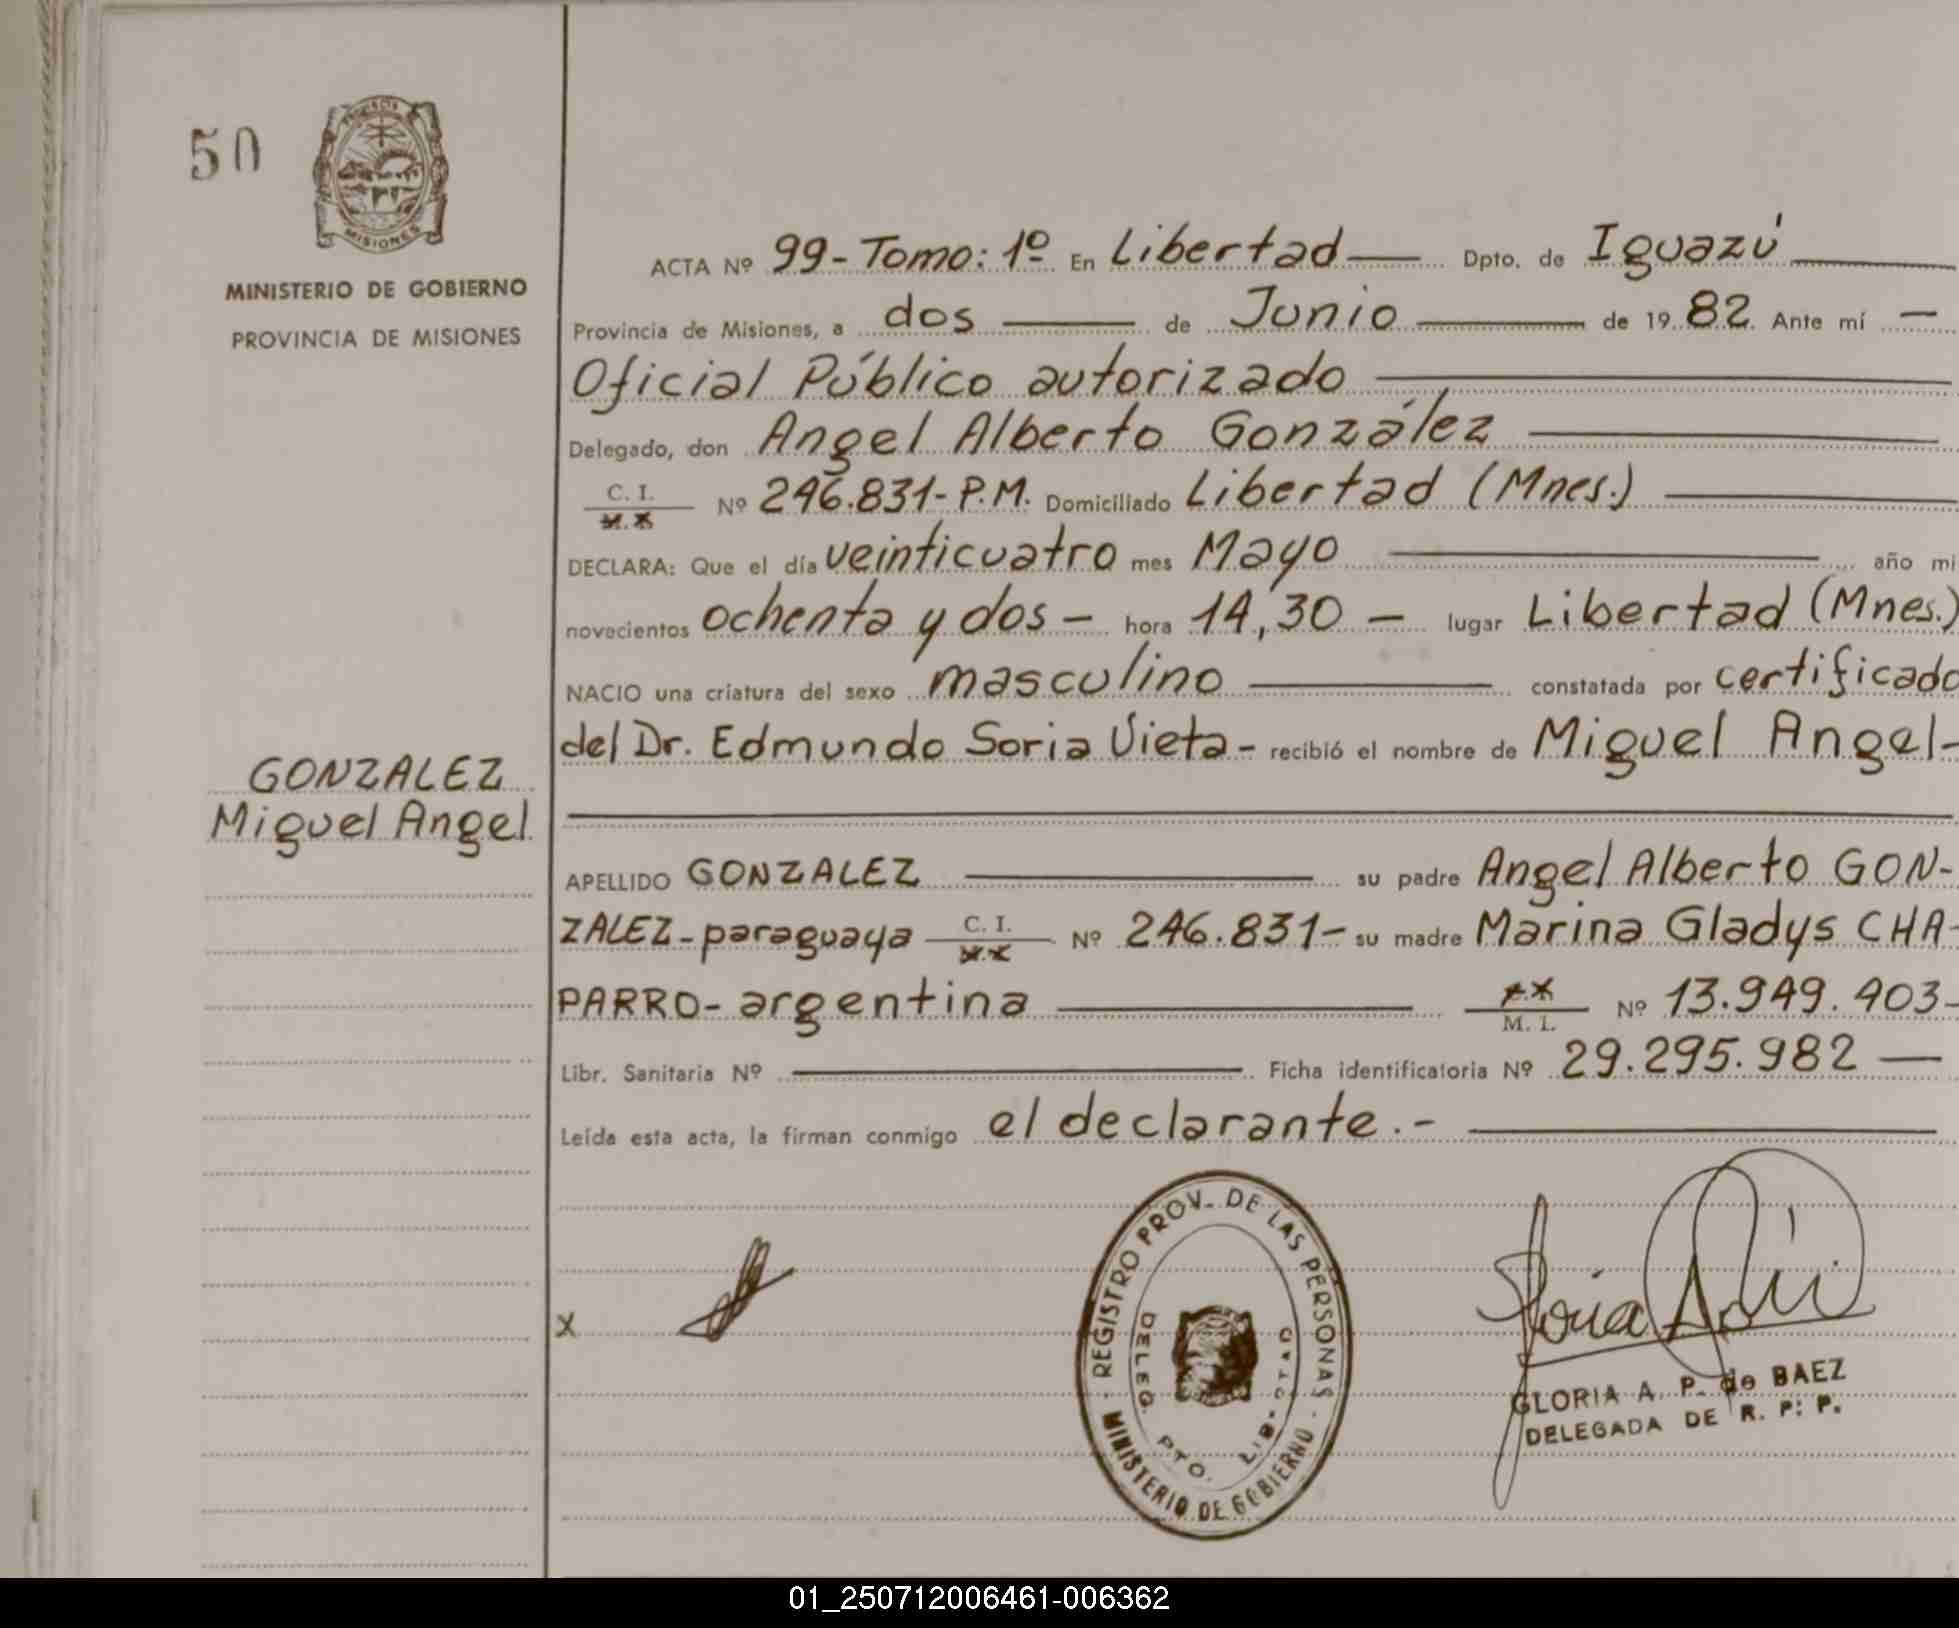 50
PROVINCIA
MISIONES
MINISTERIO DE GOBIERNO
PROVINCIA DE MISIONES
GONZALEZ
Miguel Angel
ACTA Nº 99-Tomo: 1º En Libertad — Dpto. de Iguazú —
Provincia de Misiones, a dos — de Junio — de 19 82. Ante mí —
Oficial Público autorizado —
Delegado, don Angel Alberto González —
C. I. Nº 246.831-P.M. Domiciliado Libertad (Mnes.) —
DECLARA: Que el día veinticuatro mes Mayo — año mi
novecientos ochenta y dos — hora 14,30 — lugar Libertad (Mnes.)
NACIO una criatura del sexo masculino — constatada por certificado
del Dr. Edmundo Soria Vieta - recibió el nombre de Miguel Angel-
APELLIDO GONZALEZ — su padre Angel Alberto GON-
ZALEZ - paraguaya — C. I. Nº 246.831- su madre Marina Gladys CHA-
PARRO- argentina — M. I. Nº 13.949.403-
Libr. Sanitaria Nº — Ficha identificatoria Nº 29.295.982 —
Leída esta acta, la firman conmigo el declarante.- —
X
REGISTRO PROV. DE LAS PERSONAS
DELEG. PTO. LIBERTAD
MINISTERIO DE GOBIERNO
GLORIA A. P. de BAEZ
DELEGADA DE R. P. P.
01_250712006461-006362